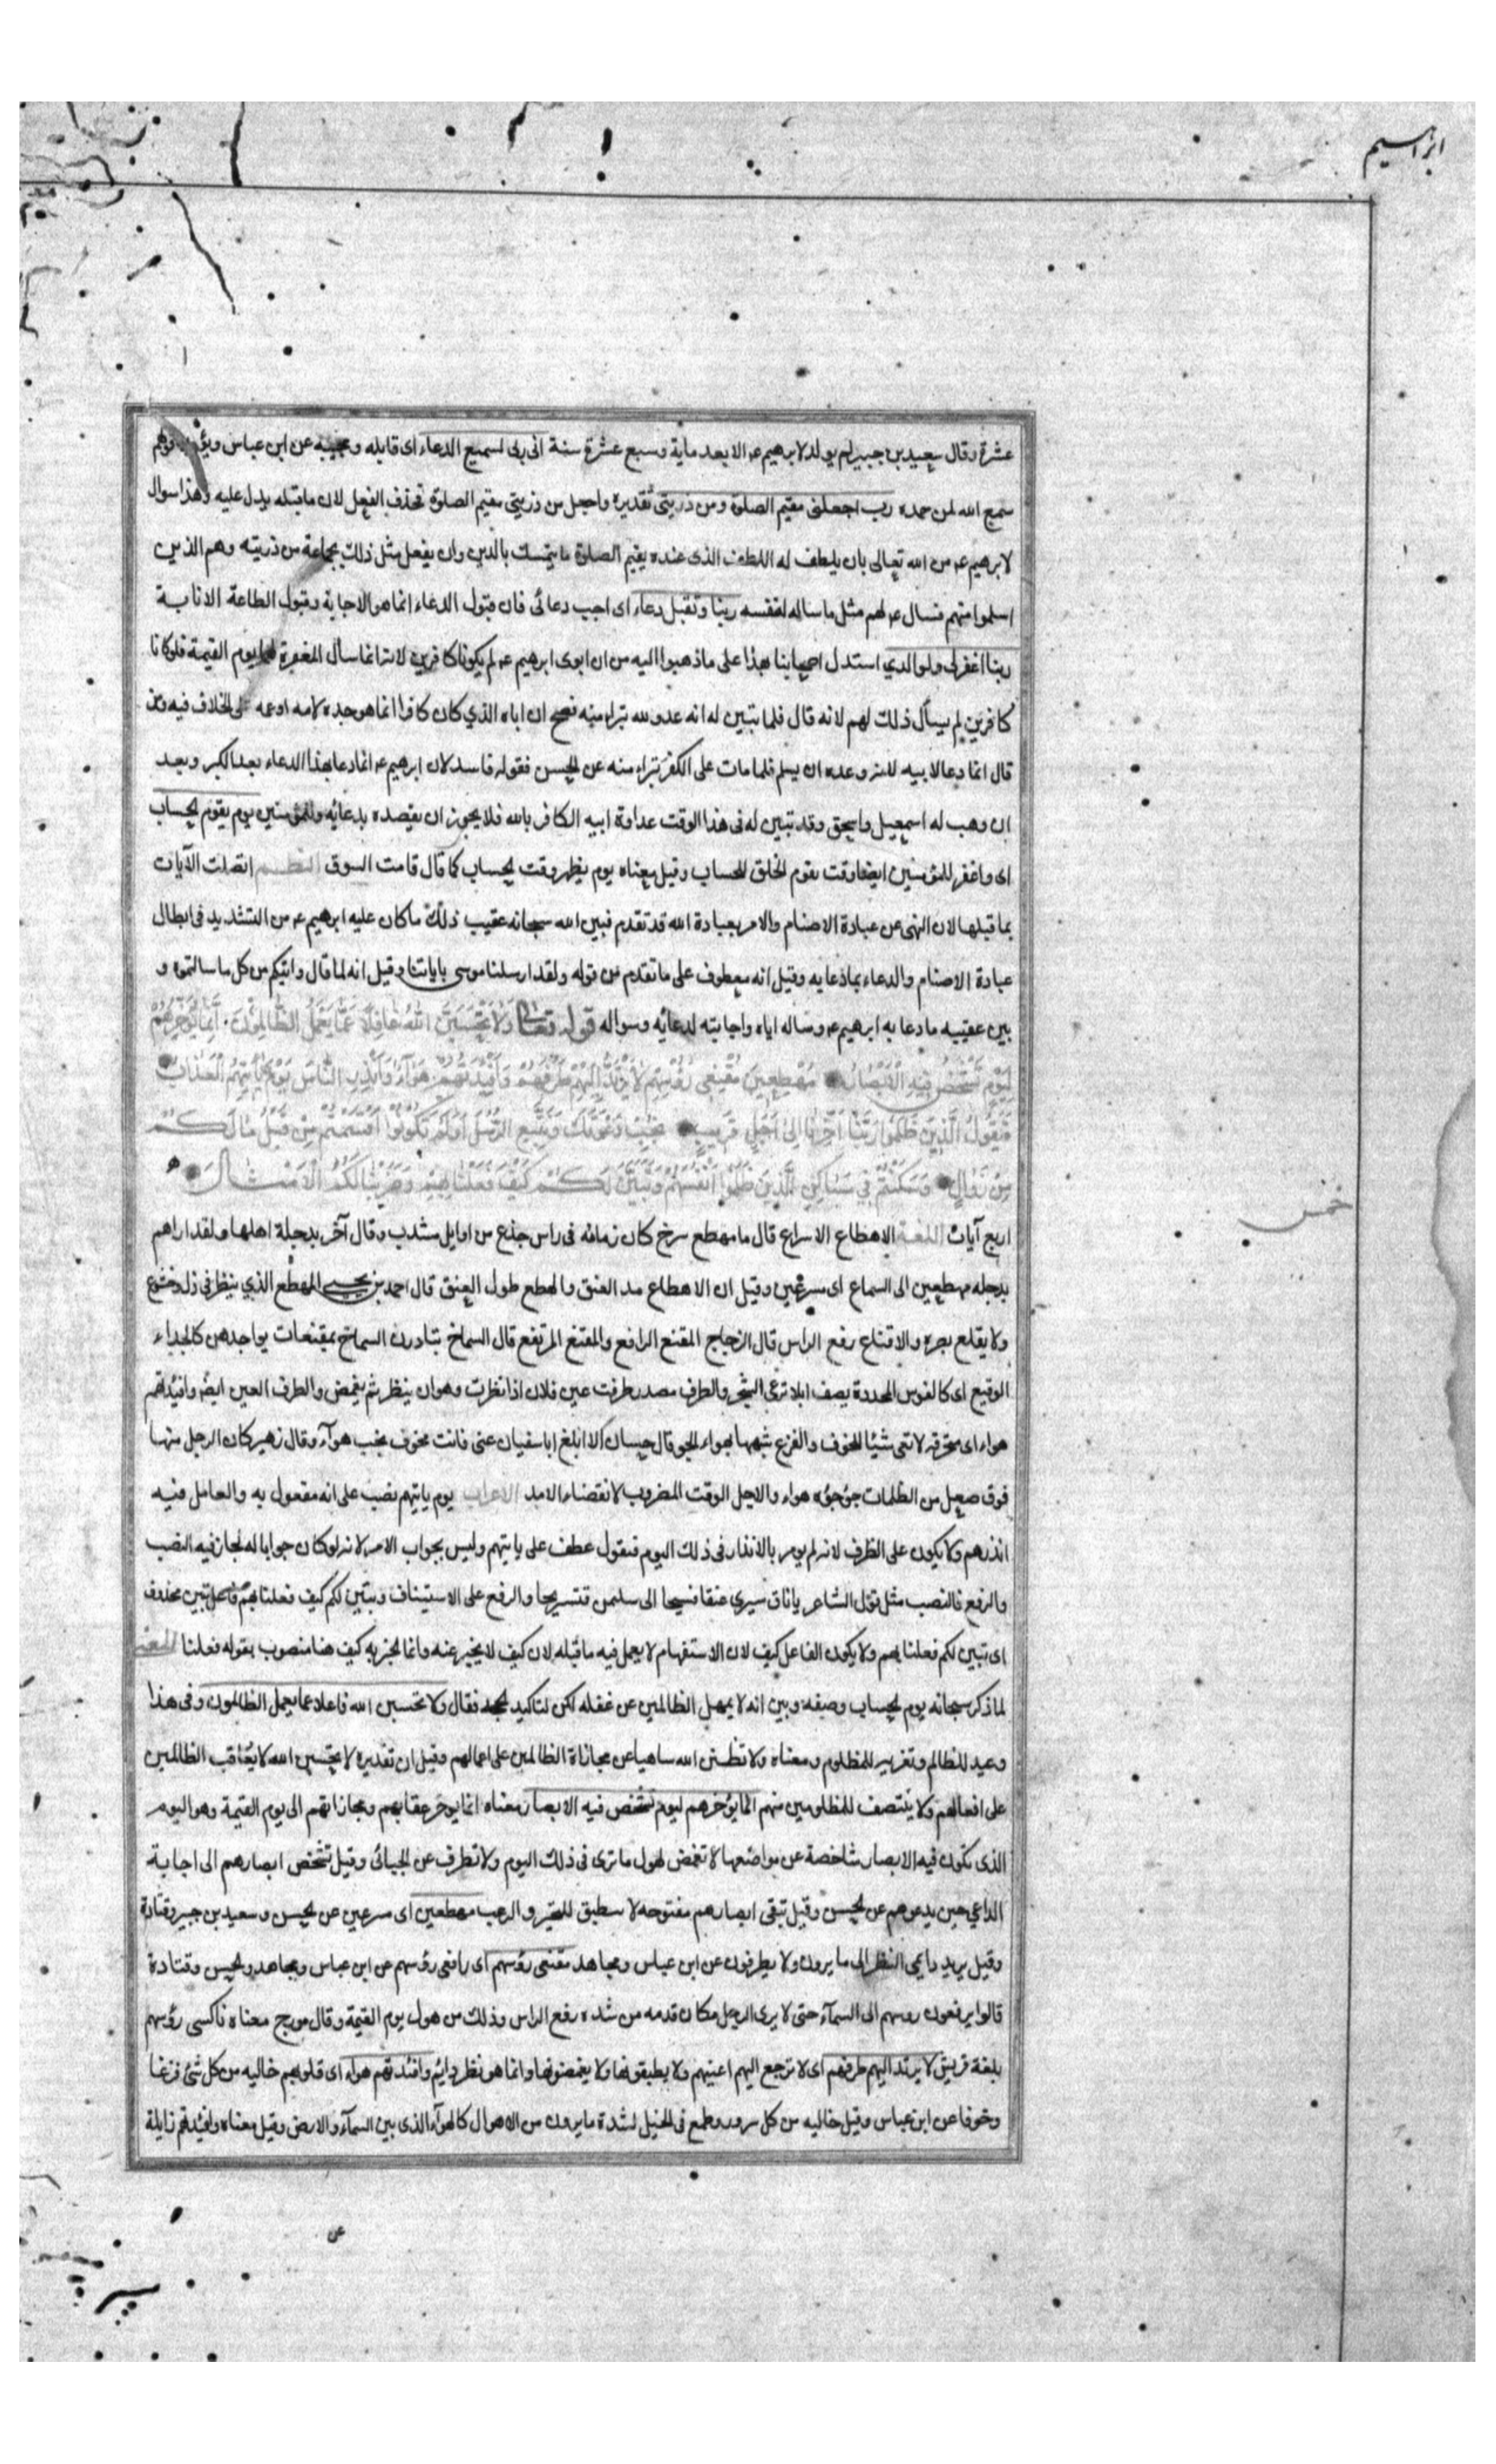 ابراهيم
عشرة وقال سعيد بن جبير لم يولد لابرهيم عه الا بعد ماية وسبع عشرة سنة ان ربى لسميع الدعاء اى قابله ومجيبه عن ابن عباس ويؤيده قولهم
سمع الله لمن حمده رب اجعلنى مقيم الصلوة ومن ذريتى تقديره واجعل من ذريتى مقيم الصلوة فحذف الفعل لان ماقبله يدل عليه وهذا سوال
لابرهيم عه من الله تعالى بان يلطف له اللطف الذى عنده يقيم الصلوة ما يتمسك بالدين وان يفعل مثل ذلك بجماعة من ذريته وهم الذين
اسلموا منهم فسال عه لهم مثل ما ساله لنفسه ربنا وتقبل دعاء اى اجب دعائى فان قبول الدعاء انما هو الاجابة وقبول الطاعة الاثابة
ربنا اغفرلى ولوالدي استدل اصحابنا بهذا على ماذهبوا اليه من ان ابوى ابرهيم عه لم يكونا كافرين لانه انما سأل المغفرة لهما يوم القيمة فلوكانا
كافرين لم يسأل ذلك لهم لانه قال فلما تبين له انه عدو لله تبراء منه فصح ان اباه الذي كان كافرا انما هو جده لامه او عمه على الخلاف فيه ومن
قال انما دعا لابيه لانه وعده ان يسلم فلما مات على الكفر تبراء منه عن الحسن فقوله فاسد لان ابرهيم عه انما دعا بهذا الدعاء بعد الكبر وبعد
ان وهب له اسمعيل واسحق وقد تبين له فى هذا الوقت عداوة ابيه الكافر بالله فلا يجوز ان يقصده بدعائه وللمؤمنين يوم يقوم الحساب
اى واغفر للمؤمنين ايضا وقت يقوم الخلق للحساب وقيل معناه يوم يظهر وقت الحساب كما قال قامت السوق النظم اتصلت الآيات
بما قبلها لان النهى عن عبادة الاصنام والامر بعبادة الله قد تقدم فبين الله سبحانه عقيب ذلك ما كان عليه ابرهيم عه من التشديد فى ابطال
عبادة الاصنام والدعاء بما دعا به وقيل انه معطوف على ما تقدم من قوله ولقد ارسلنا موسى باياتنا وقيل انه لما قال واتيكم من كل ما سالتموه و
بين عقيبه ما دعا به ابرهيم عه وساله اياه واجابته لدعائه وسواله قوله تعالى وَلَا تَحْسَبَنَّ اللهَ غَافِلًا عَمَّا يَعْمَلُ الظَّالِمُونَ اِنَّمَا يُؤَخِّرُهُمْ
لِيَوْمٍ تَشْخَصُ فِيهِ الْاَبْصَارُ مُهْطِعِينَ مُقْنِعِى رُؤُسِهِمْ لَا يَرْتَدُّ اِلَيْهِمْ طَرْفُهُمْ وَاَفْئِدَتُهُمْ هَوَآءٌ وَاَنْذِرِ النَّاسَ يَوْمَ يَأْتِيهِمُ الْعَذَابُ
فَيَقُولُ الَّذِينَ ظَلَمُوا رَبَّنَا اَخِّرْنَا اِلىٰ اَجَلٍ قَرِيبٍ نُجِبْ دَعْوَتَكَ وَنَتَّبِعِ الرُّسُلَ اَوَلَمْ تَكُونُوا اَقْسَمْتُمْ مِنْ قَبْلُ مَا لَكُمْ
مِنْ زَوَالٍ وَسَكَنْتُمْ فِي مَسَاكِنِ الَّذِينَ ظَلَمُوا اَنْفُسَهُمْ وَتَبَيَّنَ لَكُمْ كَيْفَ فَعَلْنَا بِهِمْ وَضَرَبْنَا لَكُمُ الْاَمْثَالَ
خمس
اربع آيات اللغة الاهطاع الاسراع قال مامهطع سرح كان زمامه فى راس جذع من اوايل مشذب وقال آخر بدجلة اهلها ولقد اراهم
بدجله مهطعين الى السماع اى مسرعين وقيل ان الاهطاع مد العنق والهطع طول العنق قال احمد بن يحيى المهطع الذي ينظر فى ذل وخشوع
ولا يقلع بصره والاقناع رفع الراس قال الزجاج المقنع الرافع والمقنع المرتفع قال الشماخ بمقنعات نواجذهن كالحداء
الوقيع اى كالفوس المحددة يصف ابلا ترعى الشجر والطرف مصدر طرفت عين فلان اذا نظرت وهو ان ينظر ثم يغمض والطرف العين ايضا وافئدتهم
هواء اى متخرقه لا تعى شيئا للخوف والفزع شبهها بهواء الجو قال حسان الا ابلغ اباسفيان عنى فانت مجوف نخب هوآء وقال زهير كان الرحل منها
فوق صعل من الظلمات جؤجؤه هواء والاجل الوقت المضروب لانقضاء الامد الاعراب يوم ياتيهم نصب على انه مفعول به والعامل فيه
انذرهم ولا يكون على الظرف لانه لم يومر بالانذار فى ذلك اليوم فيقول عطف على ياتيهم وليس بجواب الامر لانه لوكان جوابا له لجاز فيه النصب
والرفع فالنصب مثل قول الشاعر ياناق سيرى عنقا فسيحا الى سليمن فنستريحا والرفع على الاستيناف وتبين لكم كيف فعلنا بهم فاعل تبين محذوف
اى تبين لكم فعلنا بهم ولا يكون الفاعل كيف لان الاستفهام لا يعمل فيه ماقبله لان كيف لا يخبر عنه وانما يخبر به كيف هنا منصوب بقوله فعلنا المعنى
لما ذكر سبحانه يوم الحساب وصفه وبين انه لا يمهل الظالمين عن غفله لكن لتاكيد الحجة فقال ولا تحسبن الله غافلا عما يعمل الظالمون وفى هذا
وعيد للظالم وتعزير للمظلوم ومعناه ولا تظنن الله ساهيا عن مجازاة الظالمين على اعمالهم وقيل ان تقديره لا تحسبن الله لا يعاقب الظالمين
على افعالهم ولا ينتصف للمظلومين منهم انما يؤخرهم ليوم تشخص فيه الابصار معناه انما يؤخر عقابهم ومجازاتهم الى يوم القيمة وهو اليوم
الذى تكون فيه الابصار شاخصة عن مواضعها لا تغمض لهول ما ترى فى ذلك اليوم ولا تطرف عن الجبائى وقيل تشخص ابصارهم الى اجابة
الداعي حين يدعوهم عن الحسن وقيل تبقى ابصارهم مفتوحه لا تنطبق للتحير والرعب مهطعين اى مسرعين عن الحسن وسعيد بن جبير وقتادة
وقيل يريد دايمى النظر الى ما يرون ولا يطرفون عن ابن عباس ومجاهد مقنعى رؤسهم اى رافعى رؤسهم عن ابن عباس ومجاهد والحسن وقتادة
قالوا يرفعون روسهم الى السمآء حتى لا يرى الرجل مكان قدمه من شده رفع الراس وذلك من هول يوم القيمة وقال مورج معناه ناكسى رؤسهم
بلغة قريش لا يرتد اليهم طرفهم اى لا ترجع اليهم اعينهم ولا يطبقونها ولا يغمضونها وانما هو نظر دايم وافئدتهم هواء اى قلوبهم خاليه من كل شئ فزعا
وخوفا عن ابن عباس وقيل خاليه من كل سرور وطمع فى الخير لشدة ما يرون من الاهوال كالهوآء الذى بين السمآء والارض وقيل معناه وافئدتهم زايلة
عن